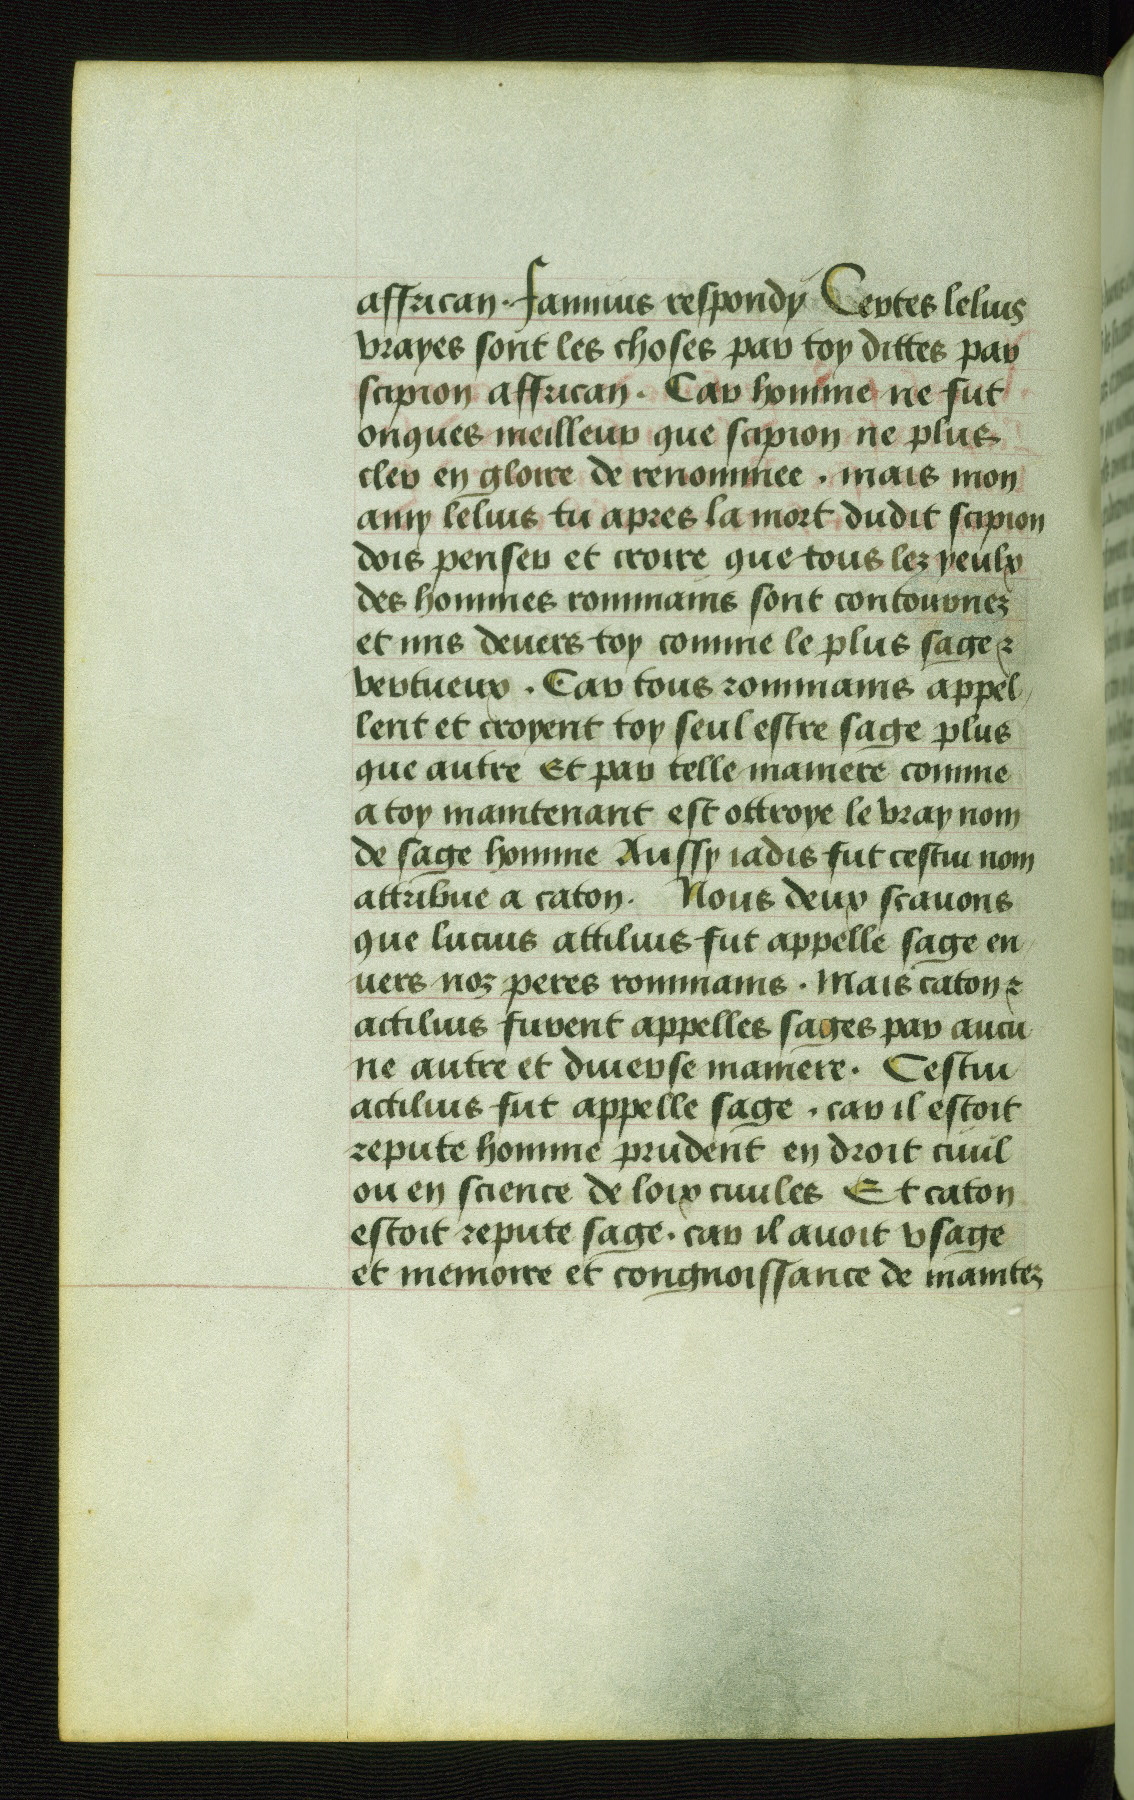 affrican. Fannius respondy Certes lelius
vrayes sont les choses par toy dittes par
scipion affrican. Car homme ne fut
onques meilleur que scipion ne plus
cler en gloire de renommee. mais mon
amy lelius tu apres la mort dudit scipion
dois penser et croire que tous lez yeulx
des hommes rommains sont contournez
et mis deuers toy comme le plus sage ⁊
vertueux. Car tous rommains appel
lent et croyent toy seul estre sage plus
que autre Et par telle maniere comme
a toy maintenant est ottroye le vray nom
de sage homme Aussy iadis fut cestui nom
attribue a caton. Nous deux scauons
que lucius attilius fut appelle sage en
uers noz peres rommains. Mais caton ⁊
actilius furent appelles sages par aucu
ne autre et diuerse maniere. Cestui
actilius fut appelle sage. car il estoit
repute homme prudent en droit ciuil
ou en science de loix ciuiles Et caton
estoit repute sage. car il auoit vsage
et memoire et congnoissance de maintez